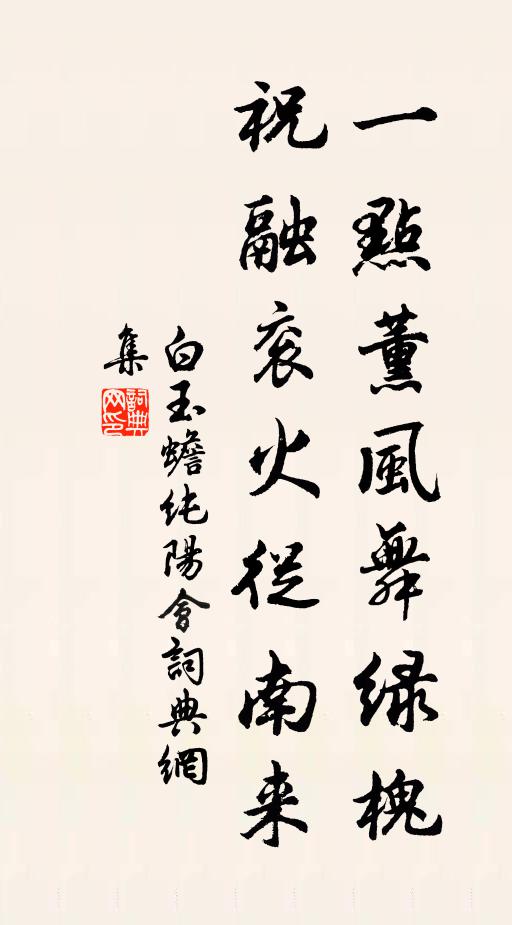 一點薰風舞绿槐
祝融衮火從南来
白玉蟾純陽會詞典網
集
詞典网印